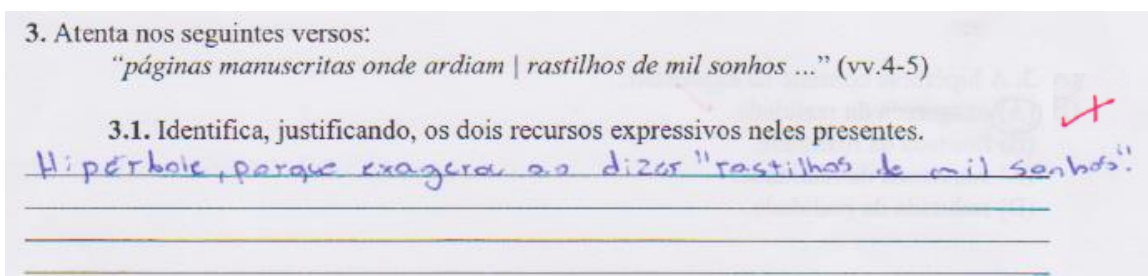 3. Atenta nos seguintes versos:
“páginas manuscritas onde ardiam | rastilhos de mil sonhos ...” (vv.4-5)
3.1. Identifica, justificando, os dois recursos expressivos neles presentes.
Hipérbole, porque exagerou ao dizer "rastilhos de mil sonhos".